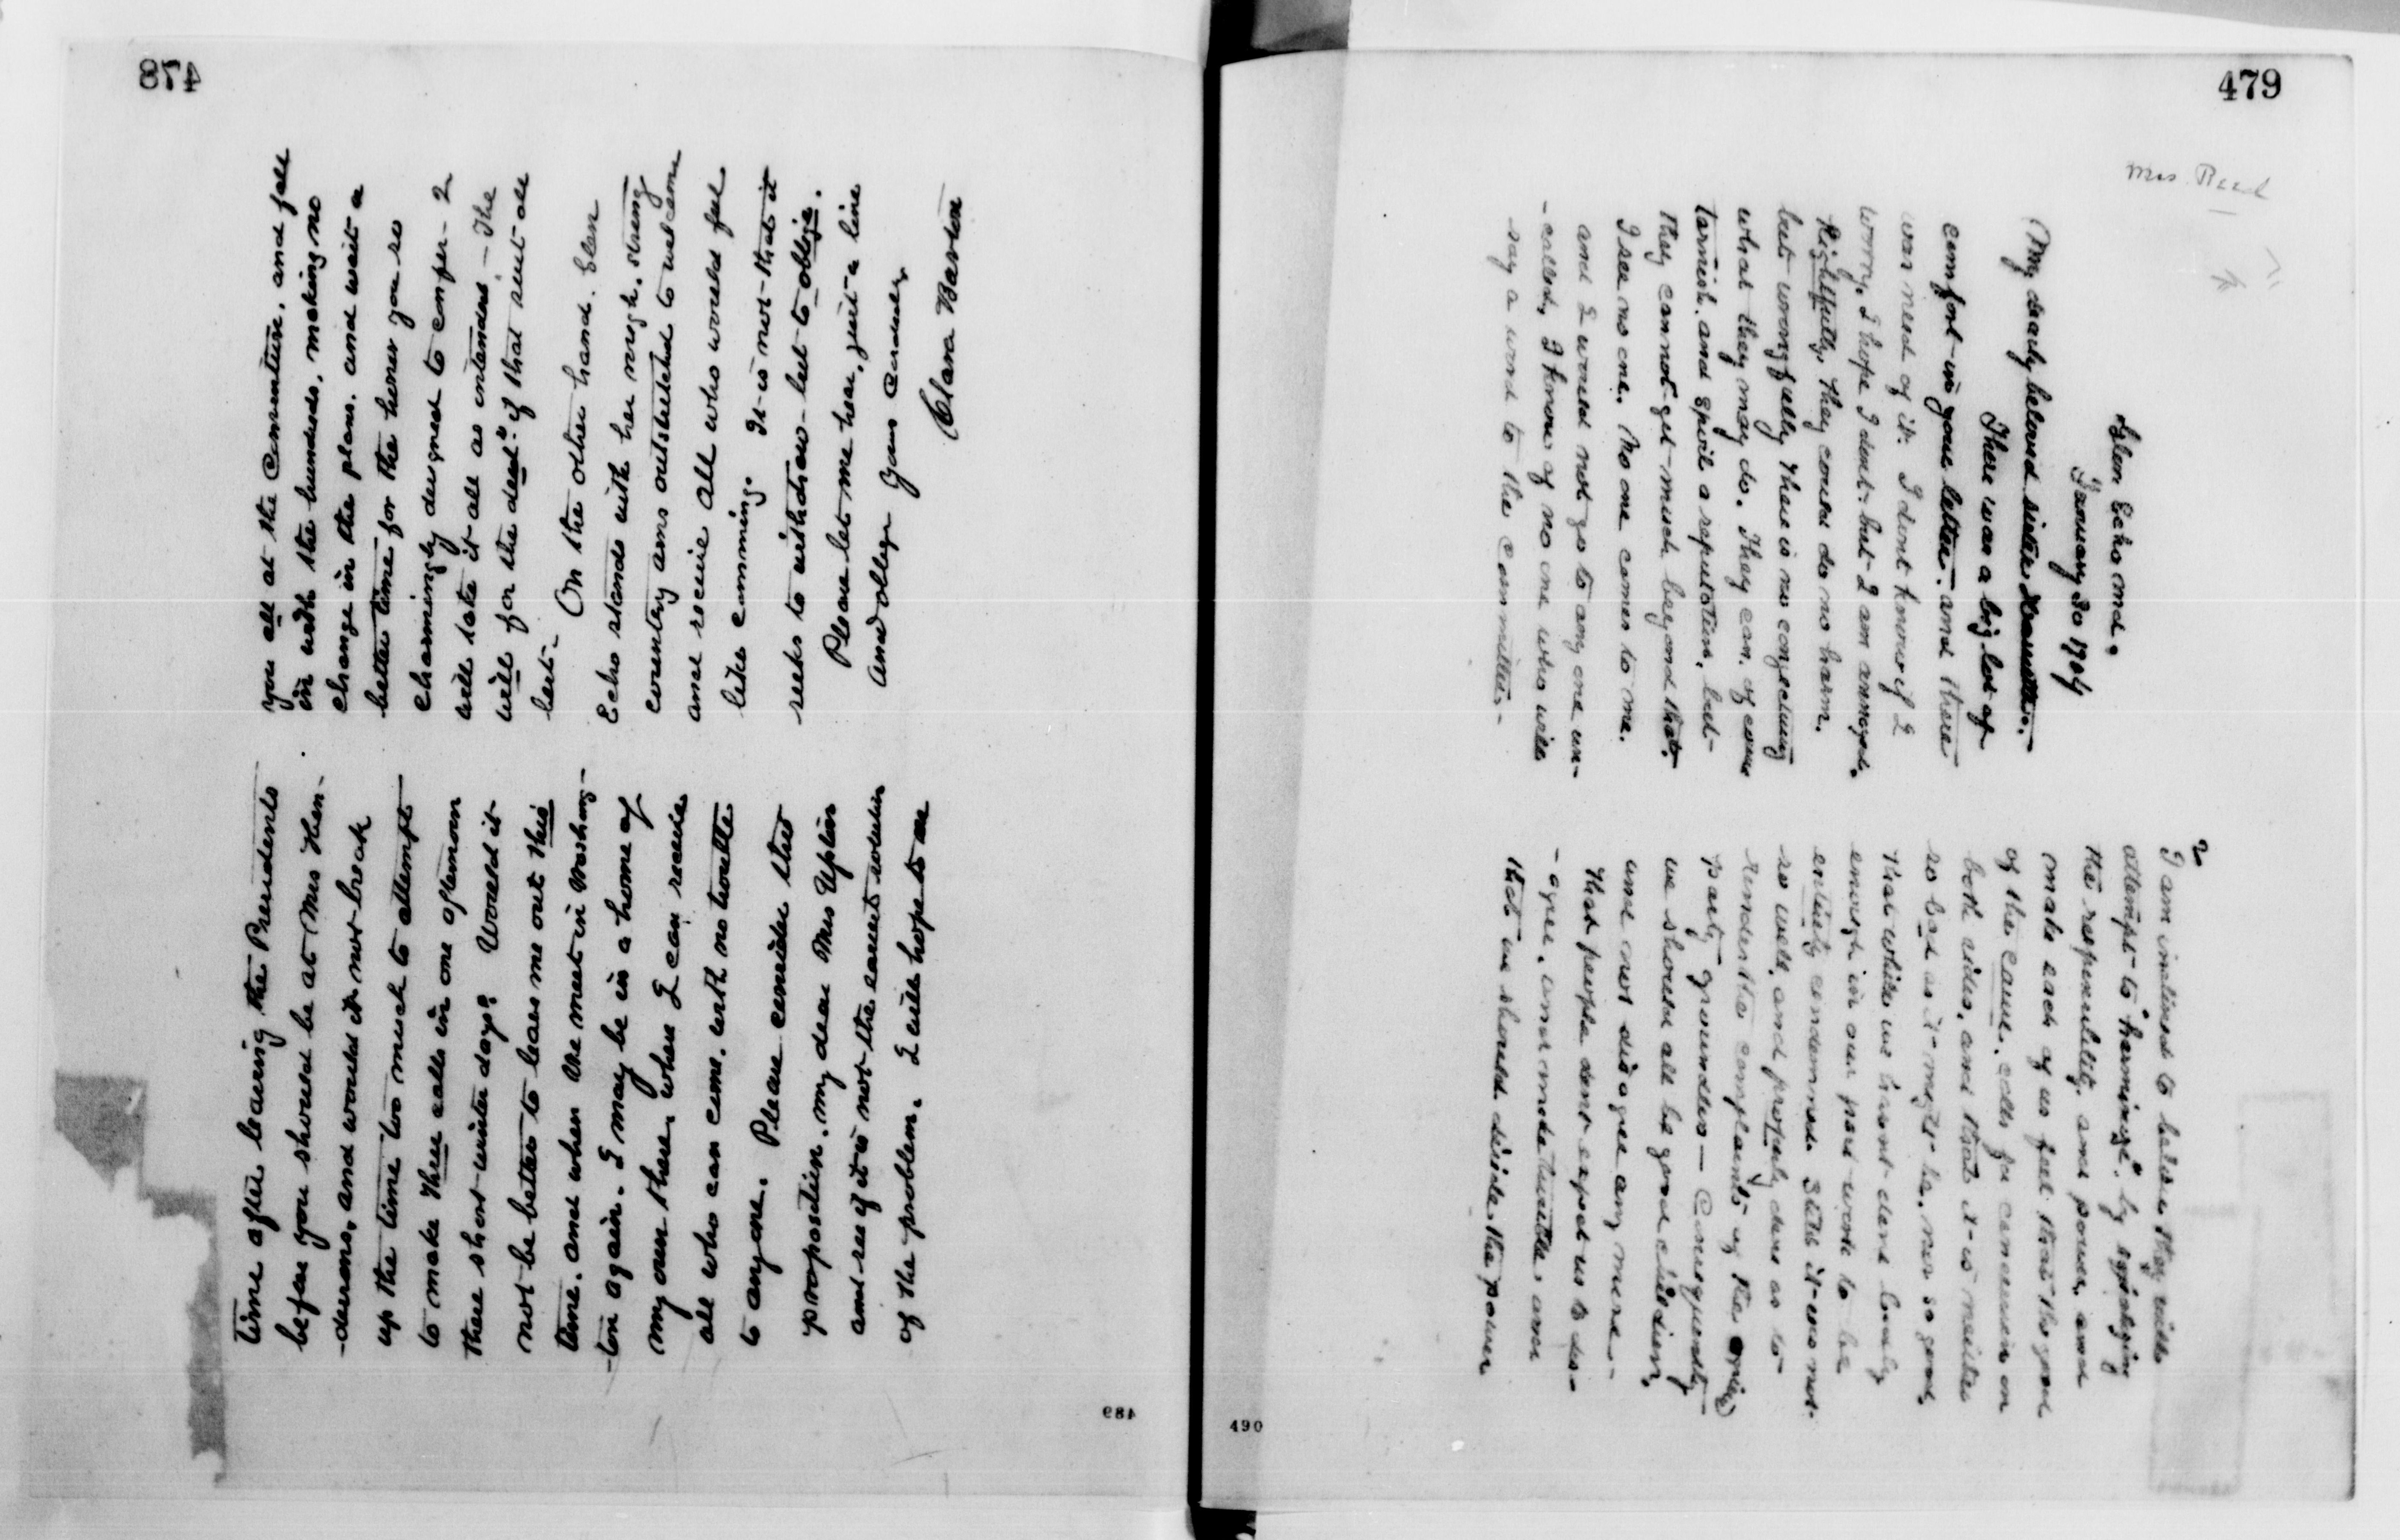 478
time after leaving the Presidents
before you should be at Mrs Hen-
-dersons, and would it not break
up the time too much to attempt
to make three calls in one afternoon
these short winter days? Would it
not be better to leave me out this
time. and when we meet in Washing-
-ton again. I may be in a home of
my own there, where I can receive
all who can come. with no trouble
to anyone. Please consider this
proposition. my dear Mrs Upton
and see if it is not the correct solution
of the problem. I will hope to see
you all at the Convention. and fall
in with the hundreds. making no
change in the plans. and wait a
better time for the honor you so
charmingly designed to confer - I
will take it all as intended - The
will for the deed" if that suit all
best -
On the other hand. Glen
Echo stands with her rough. strong
country arms outstretched to welcome
and receive all who would feel
like comming. It is not that it
seeks to withdraw - but to oblige.
Please let me hear, just a line
and oblige Yours Cordially
Clara Barton
489
479
Mrs. Read
Glen Echo Md.
January 20 1904
My dearly beloved sister
There was a big lot of
comfort in your letter. and there
was need of it. I dont know if I
worry, I hope I dont. but I am annoyed.
Rightfully, they could do no harm.
but wrongfully there is no conjecturing
what they may do. They can. of course
tarnish. and spoil a reputation, but
they cannot get much beyond that.
I see no one. No one comes to me.
and I would not go to any one un-
-called, I know of no one who will
say a word to the committee. -
2
I am inclined to believe they will
attempt to "harminize". by apologizing
the responsibility. and power, and
make each of us feel that the good
of the cause. calls for concession on
both sides, and that it is neither
so bad as it might be, nor so good,
that while we havnt done hardly
enough in our past work to be
entirely condemned. Still it was not
so well, and properly done as to
render the complaints of the
party groundless - Consequently
we should all be good children,
and not disagree any more -
that people dont expect us to dis-
- agree, and
that we should divide the power
490